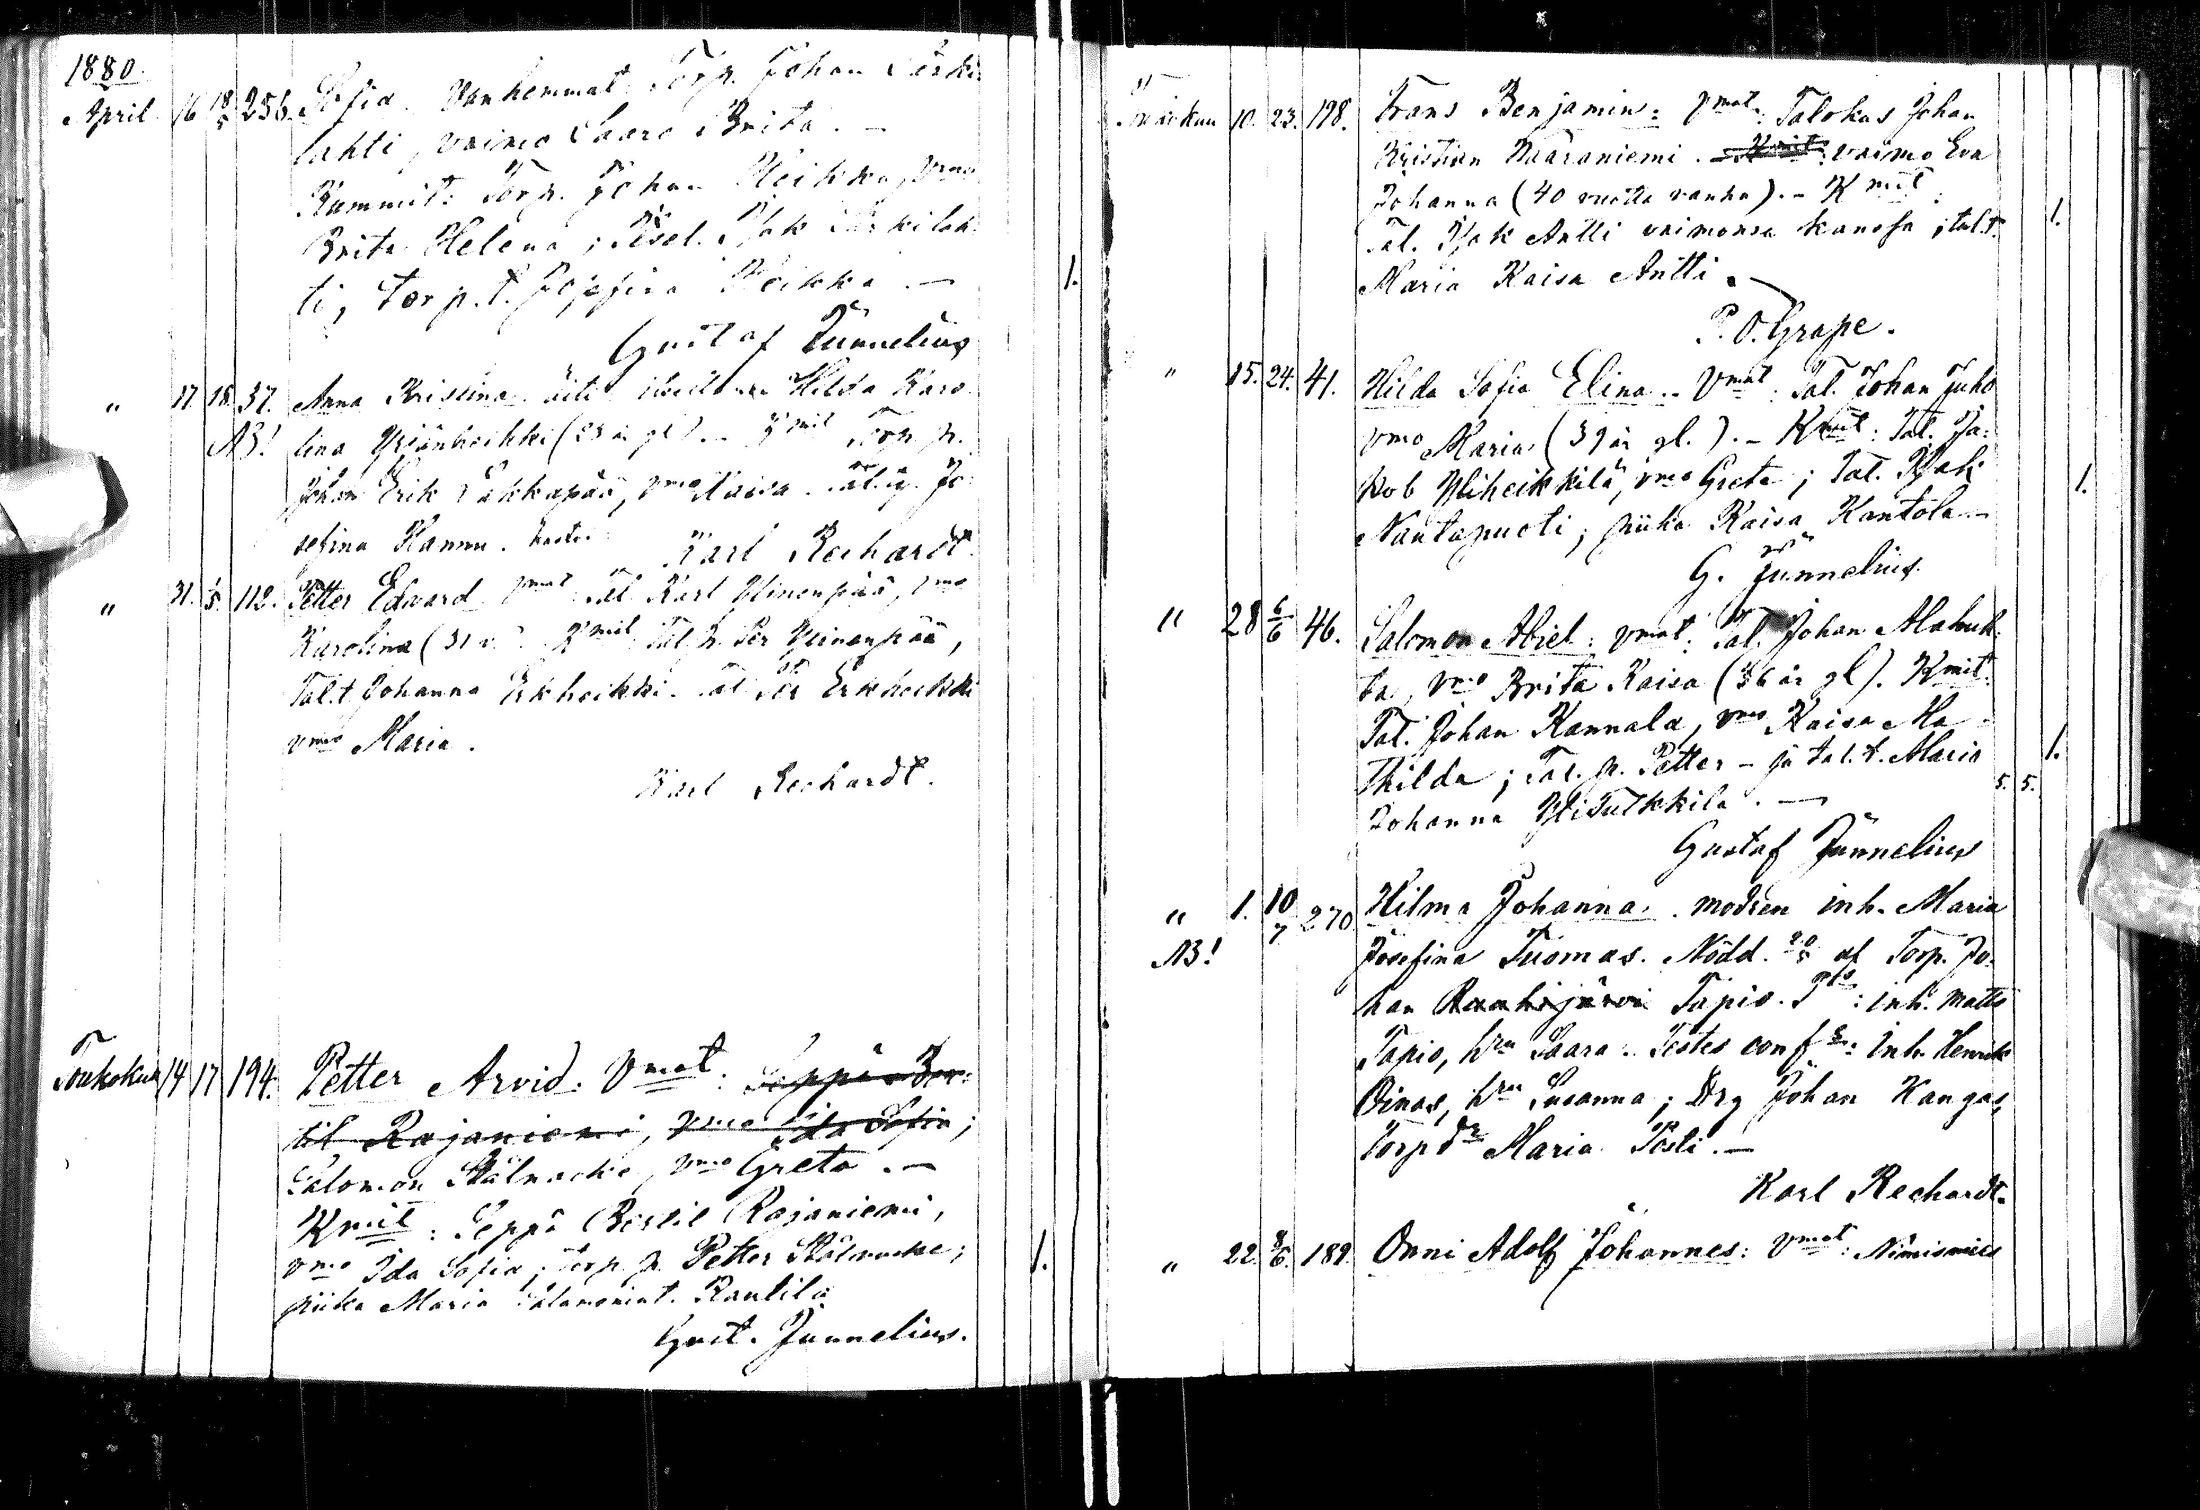 1880.
April 16 18/5 256. Sofia. Vanhemmat: Torp. Johan Särki-
lahti, vaimo Saara Brita. –
Kummit: Torp. Johan Heikka, vmo
Brita Helena; Itsel. Isak Särkilah-
ti, torp. t. Josefina Heikka. – 1.
Gustaf Junnelius
" 17. 18. 37. Anna Kristina. äiti Hilda Karo-
NB! lina Yrjänheikki (23 år gl). – Kmit Torp. p.
Johan Erik Lakkapää, vmo Kaisa. Jo-
sefina Hannu.
Karl Rechardt.
" 21. 5. 112. Petter Edvard Vmat Tal. Karl Ylinenpää, vmo
Karolina (31 v.) Kmit Tal. p. Per Ylinenpää,
Tal.t. Johanna Erkheikki. Tal. Per Erkheikki
vmo Maria.
Karl Rechardt.
Toukokuu 14 17 194. Petter Arvid: Vmat: Seppä Ber-
til Rajaniemi, vmo Ida Sofia;
Salomon Stålnacke, vmo Greta. –
Kmit: Seppä Bertil Rajaniemi,
vmo Ida Sofia; Torp. p. Petter Stålnacke;
piika Maria Salomonint. Rautila 1.
Gust. Junnelius.
Toukokuu 10. 23. 198. Frans Benjamin: Vmat: Talokas Johan
Kristian Naaraniemi. Kmit: vaimo Eva
Johanna (40 vuotta vanha). – Kmit:
Tal. Isak Antti vaimonsa kanssa; tal.t.
Maria Kaisa Antti. – 1.
P. O. Grape.
" 15. 24. 41. Hilda Sofia Elina.. Vmat: Tal. Johan Juho
vmo Maria (39 år gl.). – Kmit: Tal. Ja-
kob Yliheikkilä, vmo Greta; Tal. Isak
Nautapuoti; piika Kaisa Kantola – 1.
G. Junnelius.
" 28 6/6 46. Salomon Abiel: vmat: Tal. Johan Alaluuk-
ka, vmo Brita Kaisa (36 år gl). Kmit:
Tal. Johan Kannala, vmo Kaisa Ma-
thilda; Tal. p. Petter – ja tal. t. Maria
Johanna Ylitulkkila. – 5. 5. 1.
Gustaf Junnelius
" 1. 10/7 270 Hilma Johanna. modren inh. Maria
NB! Josefina Tuomas. Nödd. 20/5 af Torp. Jo-
han Rauhajärvi Tapio. Tts: inh. Matts
Tapio, hru Saara. Testes conf.: Inh. Henrik
Oinas, hru Susanna; Drg Johan Kangas,
Torp dr Maria Posti. –
Karl Rechardt.
" 22. 8/6. 189. Onni Adolf Johannes: Vmat: Nimismies